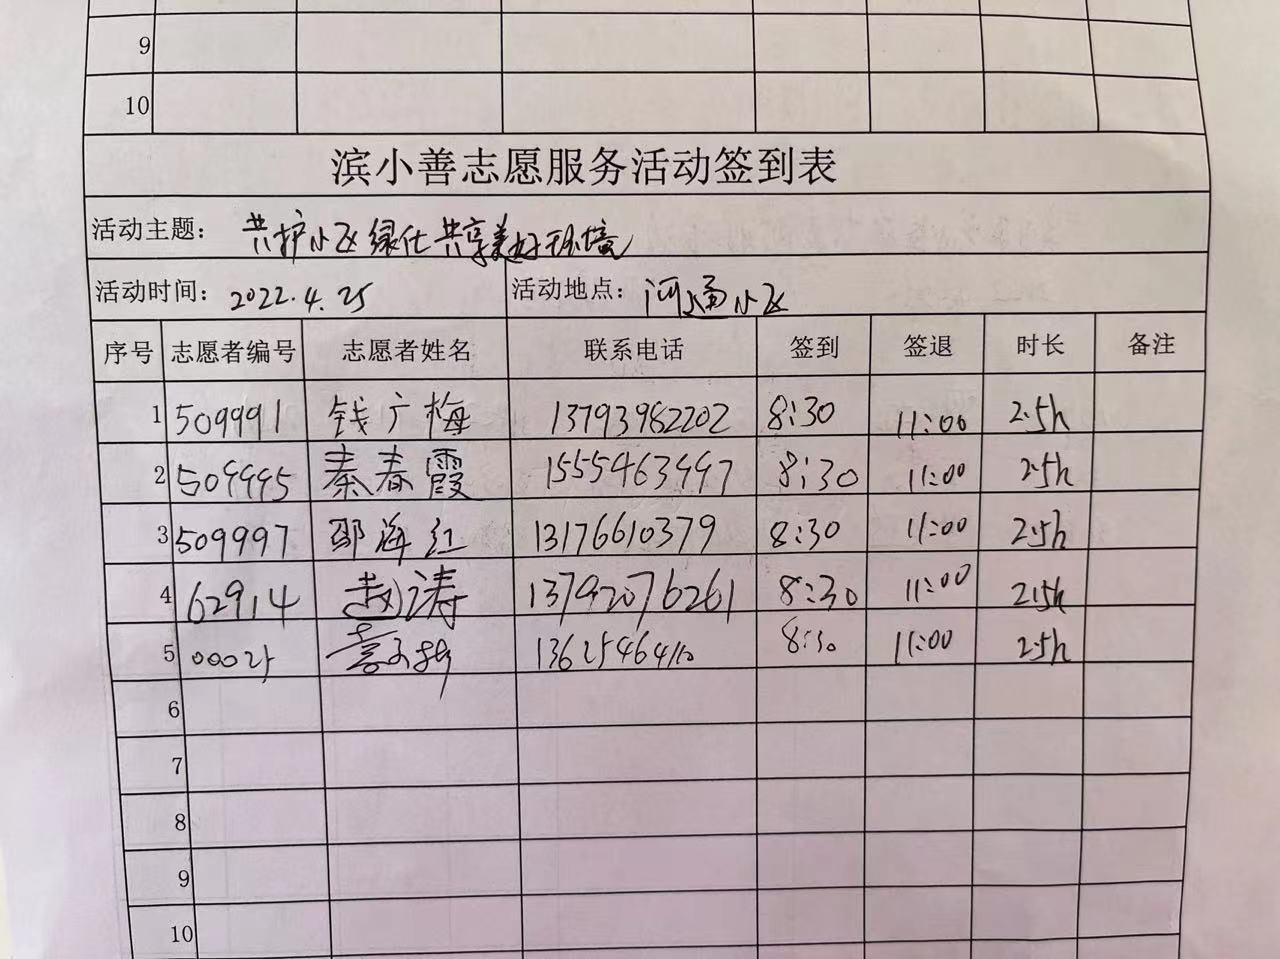 9
10
滨小善志愿服务活动签到表
活动主题： 共护小区绿化 共享美好环境
活动时间： 2022.4.25 活动地点： 河通小区
序号 志愿者编号 志愿者姓名 联系电话 签到 签退 时长 备注
1 509991 钱广梅 13793982202 8:30 11:00 2.5h
2 509995 秦春霞 1555463997 8:30 11:00 2.5h
3 509997 邵海红 13176610379 8:30 11:00 2.5h
4 62914 赵涛 13792076261 8:30 11:00 2.5h
5 8:30 11:00 2.5h
6
7
8
9
10